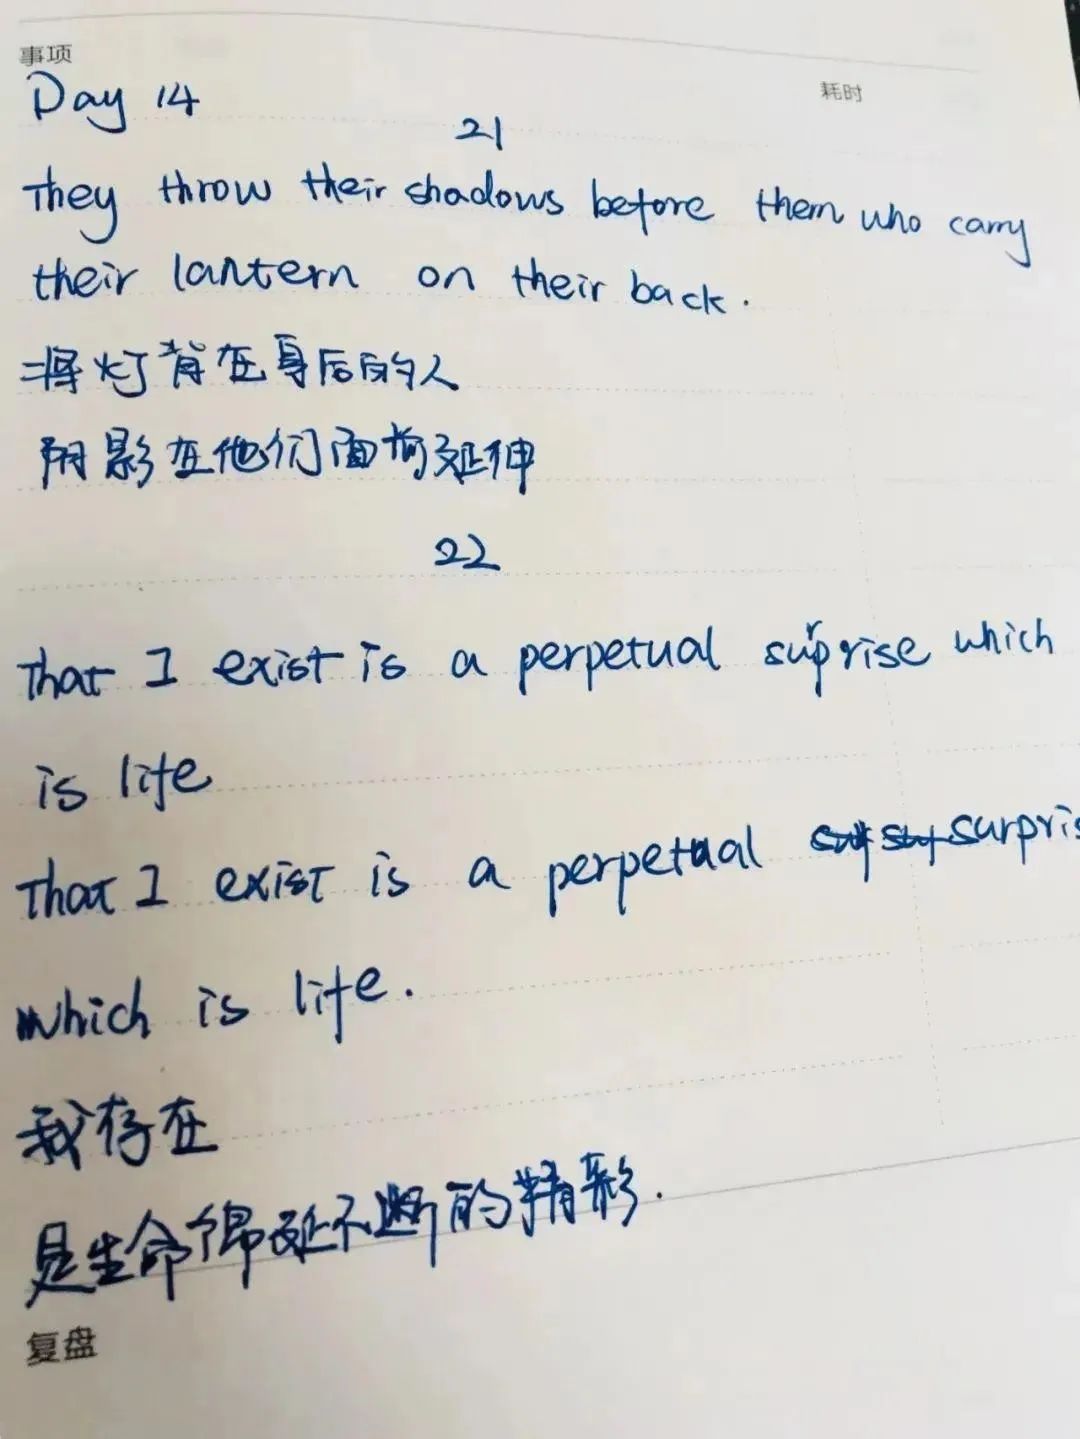 事项
耗时
Day 14
21
They throw their shadows before them who carry
their lantern on their back.
将灯背在身后的人
阴影在他们面前延伸
22
That I exist is a perpetual surprise which
is life
That I exist is a perpetual surpris
which is life.
我存在
是生命绵延不断的精彩.
复盘